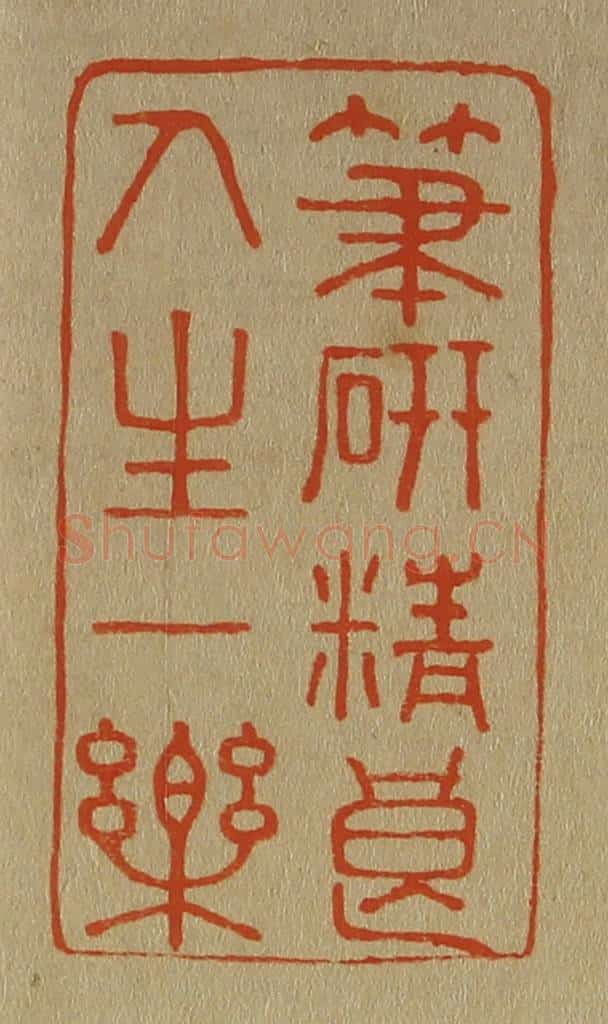 筆研精良
人生一樂
Shufawang.CN